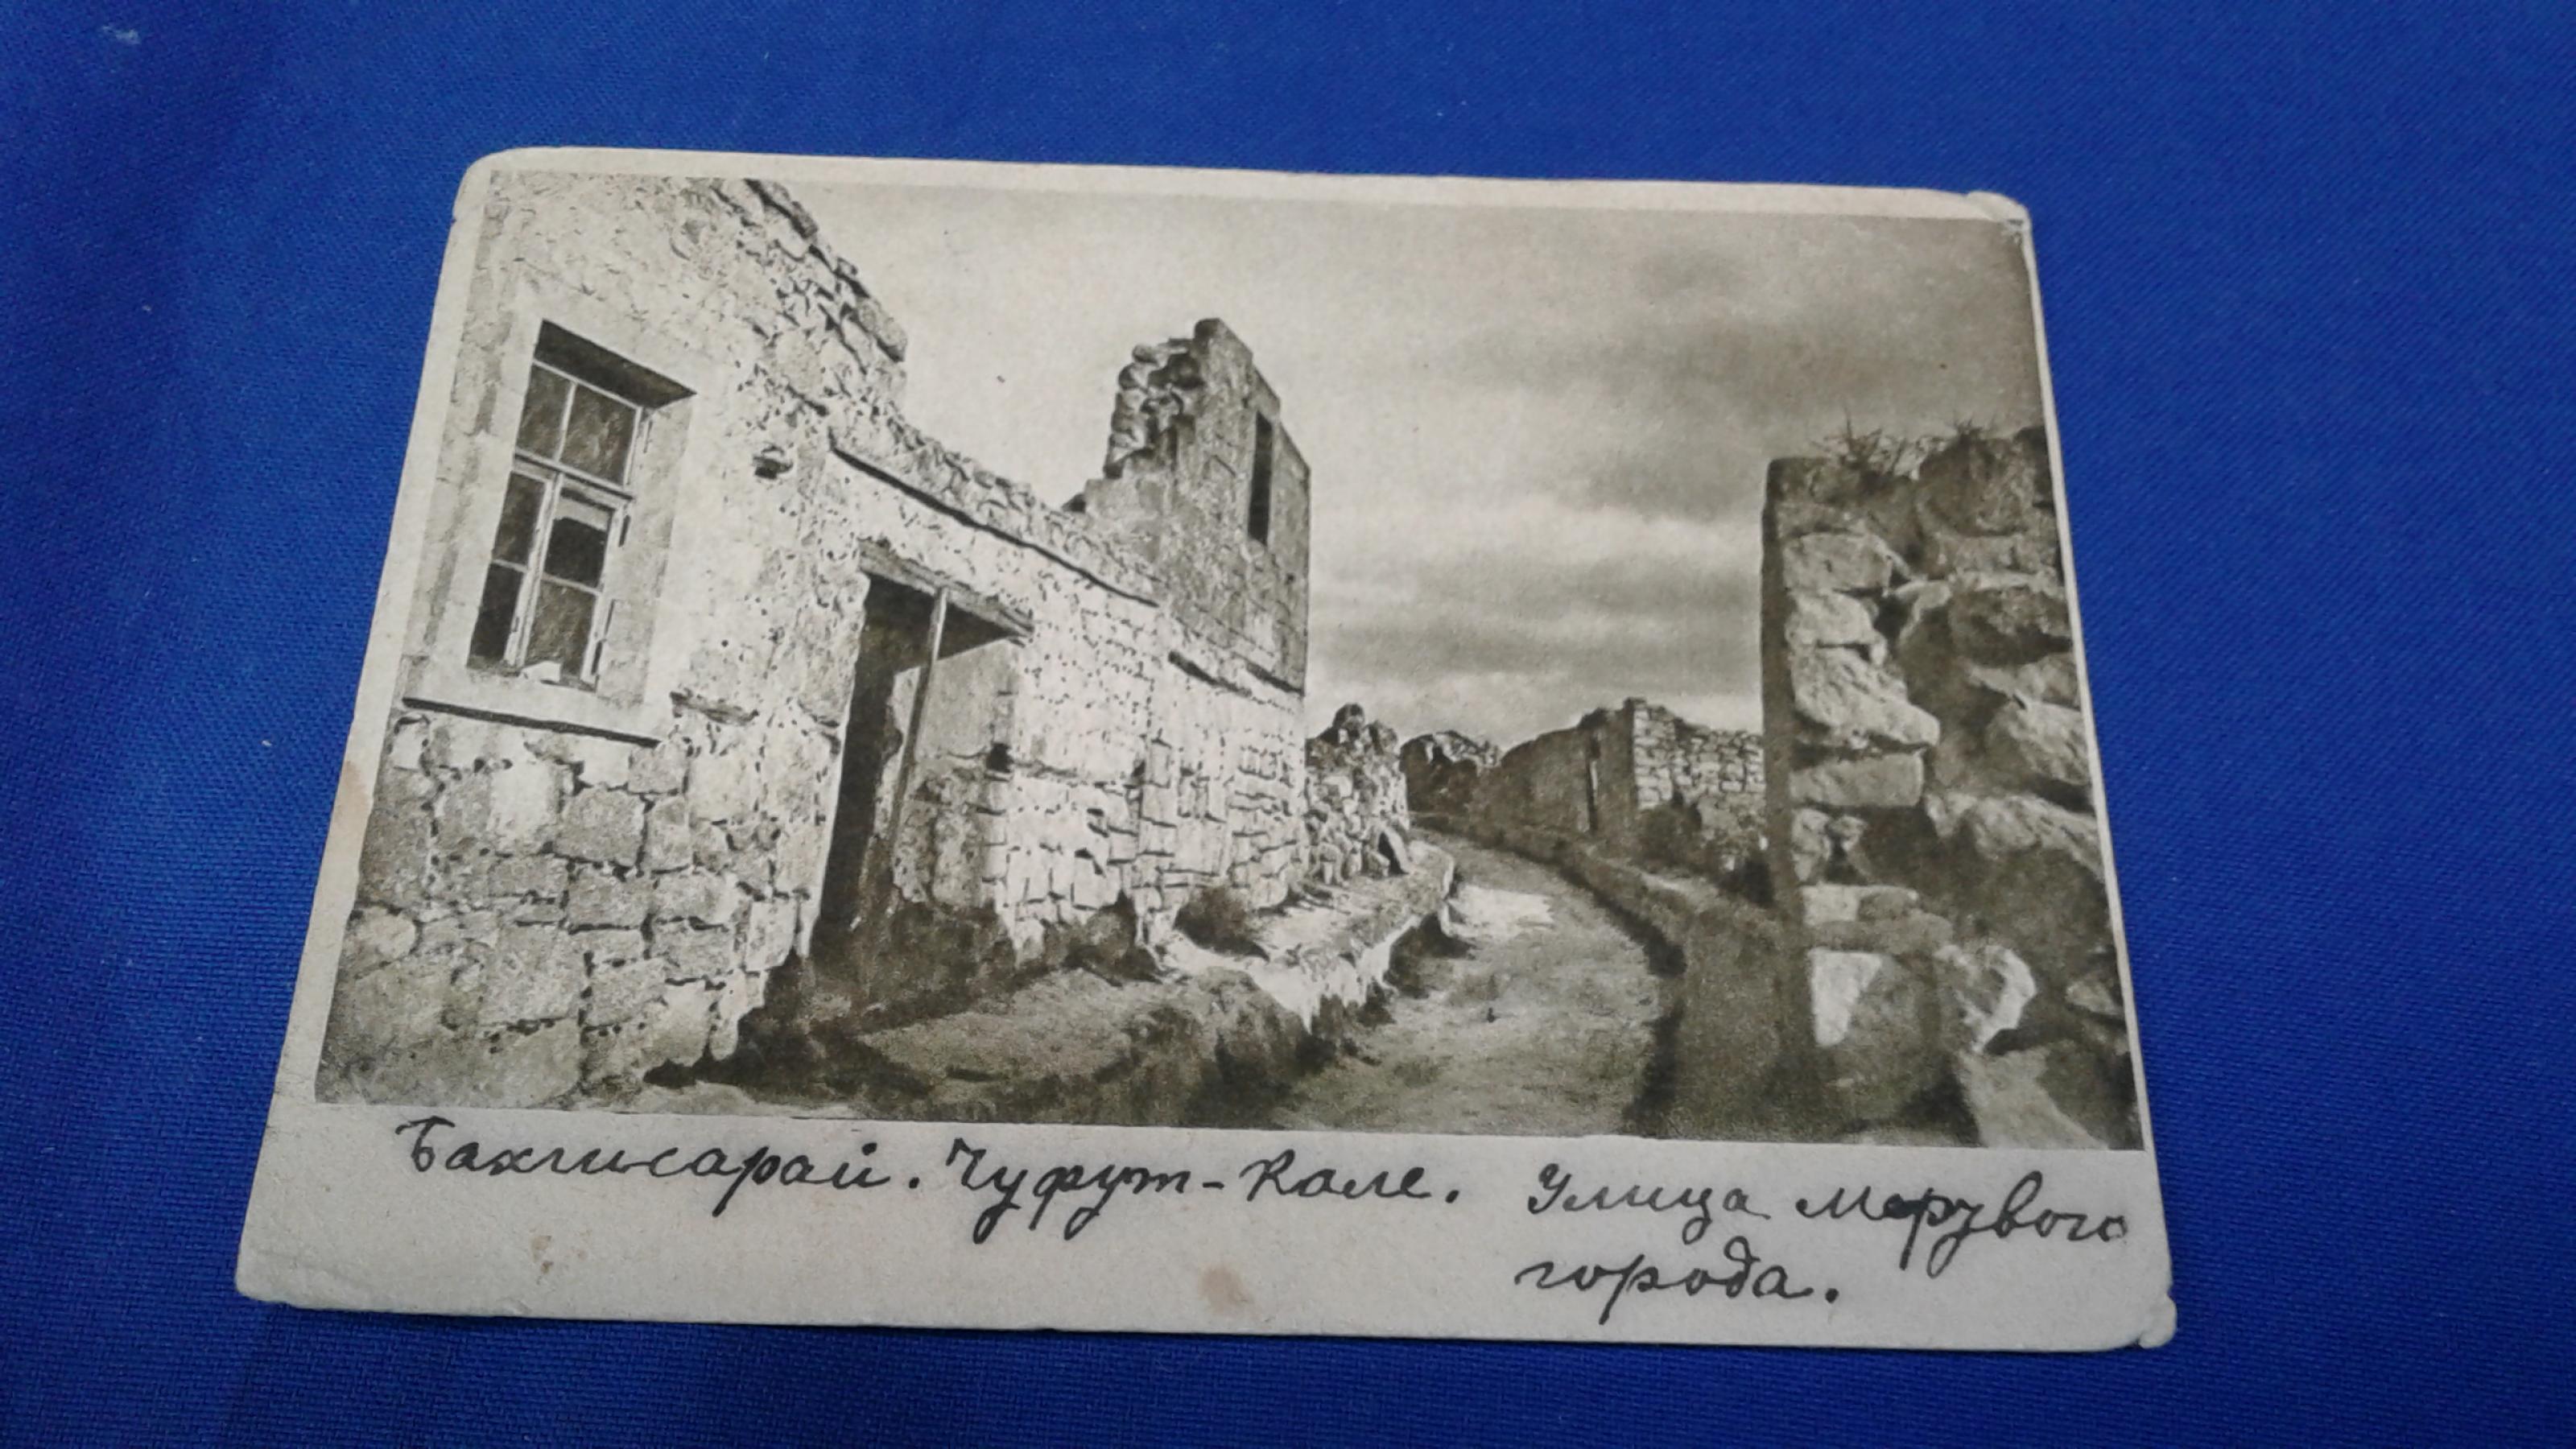 Бахчисарай. Чуфут-Кале. Улица Мертвого
города.